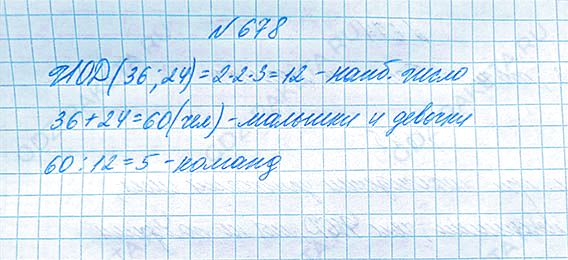 №678
НОД(36;24)=2·2·3=12 - наиб. число
36+24=60(чел) - мальчики и девочки
60:12=5 - команд